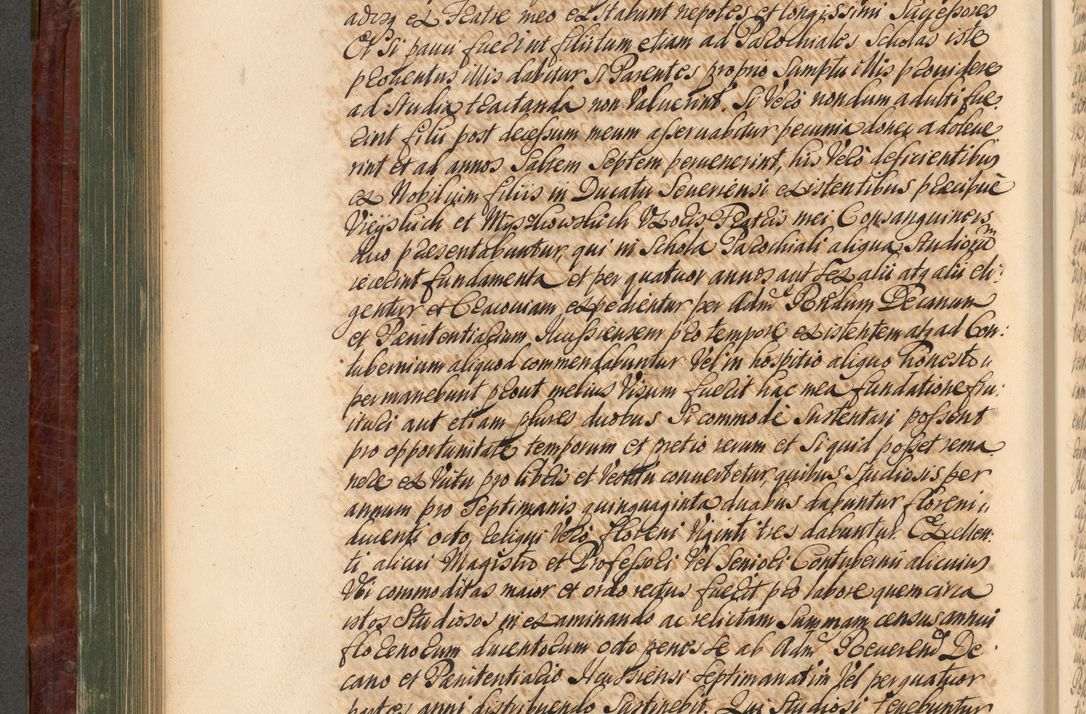 adirq ex Fratre meo exstabunt nepotes et longissimi Successores
Et si pauci fuerint filii tum etiam ad Parochiales Scholas iste
prouentus illis dabitur si Parentes proprio Sumptu illis prouidere
ad Studia tractanda non Valuerint, Si Vero nondum adulti fue:
rint filii post decessum meum asseruabitur pecunia donec adoleue
rint et ad annos Saltem Septem peruenerint, his Vero deficientibus
ex Nobilium filiis in Ducatu Seueriensi existentibus præcipuè
et Myszkowskich Vxoris Fratris mei Consanguineis
duo præsentabuntur, qui in Schola Parochiali aliqua Studiorũ
iecerint fundamenta et per quatuor annos aut sex alii atq alii eli:
gentur et Cracouiam expedientur per Adm Rendum Decanum
et Pænitentiarium, pro tempore existentem ac ad Con:
tubernium aliquod commendabuntur Vel in hospitio aliquo honesto
permanebunt prout melius Visum fuerit hac mea fundatione fru:
ituri aut etiam plures duobus Si commodè Sustentari possent
pro opportunitate temporum et pretio rerum et Si quid posset rema
nere ex Victu pro libris et Vestitu conuertetur, quibus Studiosis per
annum pro Septimanis quinquaginta duabus dabuntur floreni
ducenti octo, Reliqui Vero floreni Viginti tres dabuntur Excellen:
ti alicui Magistro et Professori Vel Seniori Contubernii alicuius
Vbi commoditas maior et ordo rectus fuerit pro labore quem circa
istos Studiosos in examinando ac relictam Summam census annui
florenorum ducentorum octo penes se ab Adm Reuerend De
cano et Pænitentiario septimanatim Vel per quatuor
partes anni distribuendo Sustinebit. Qui Studiosi tenebuntur